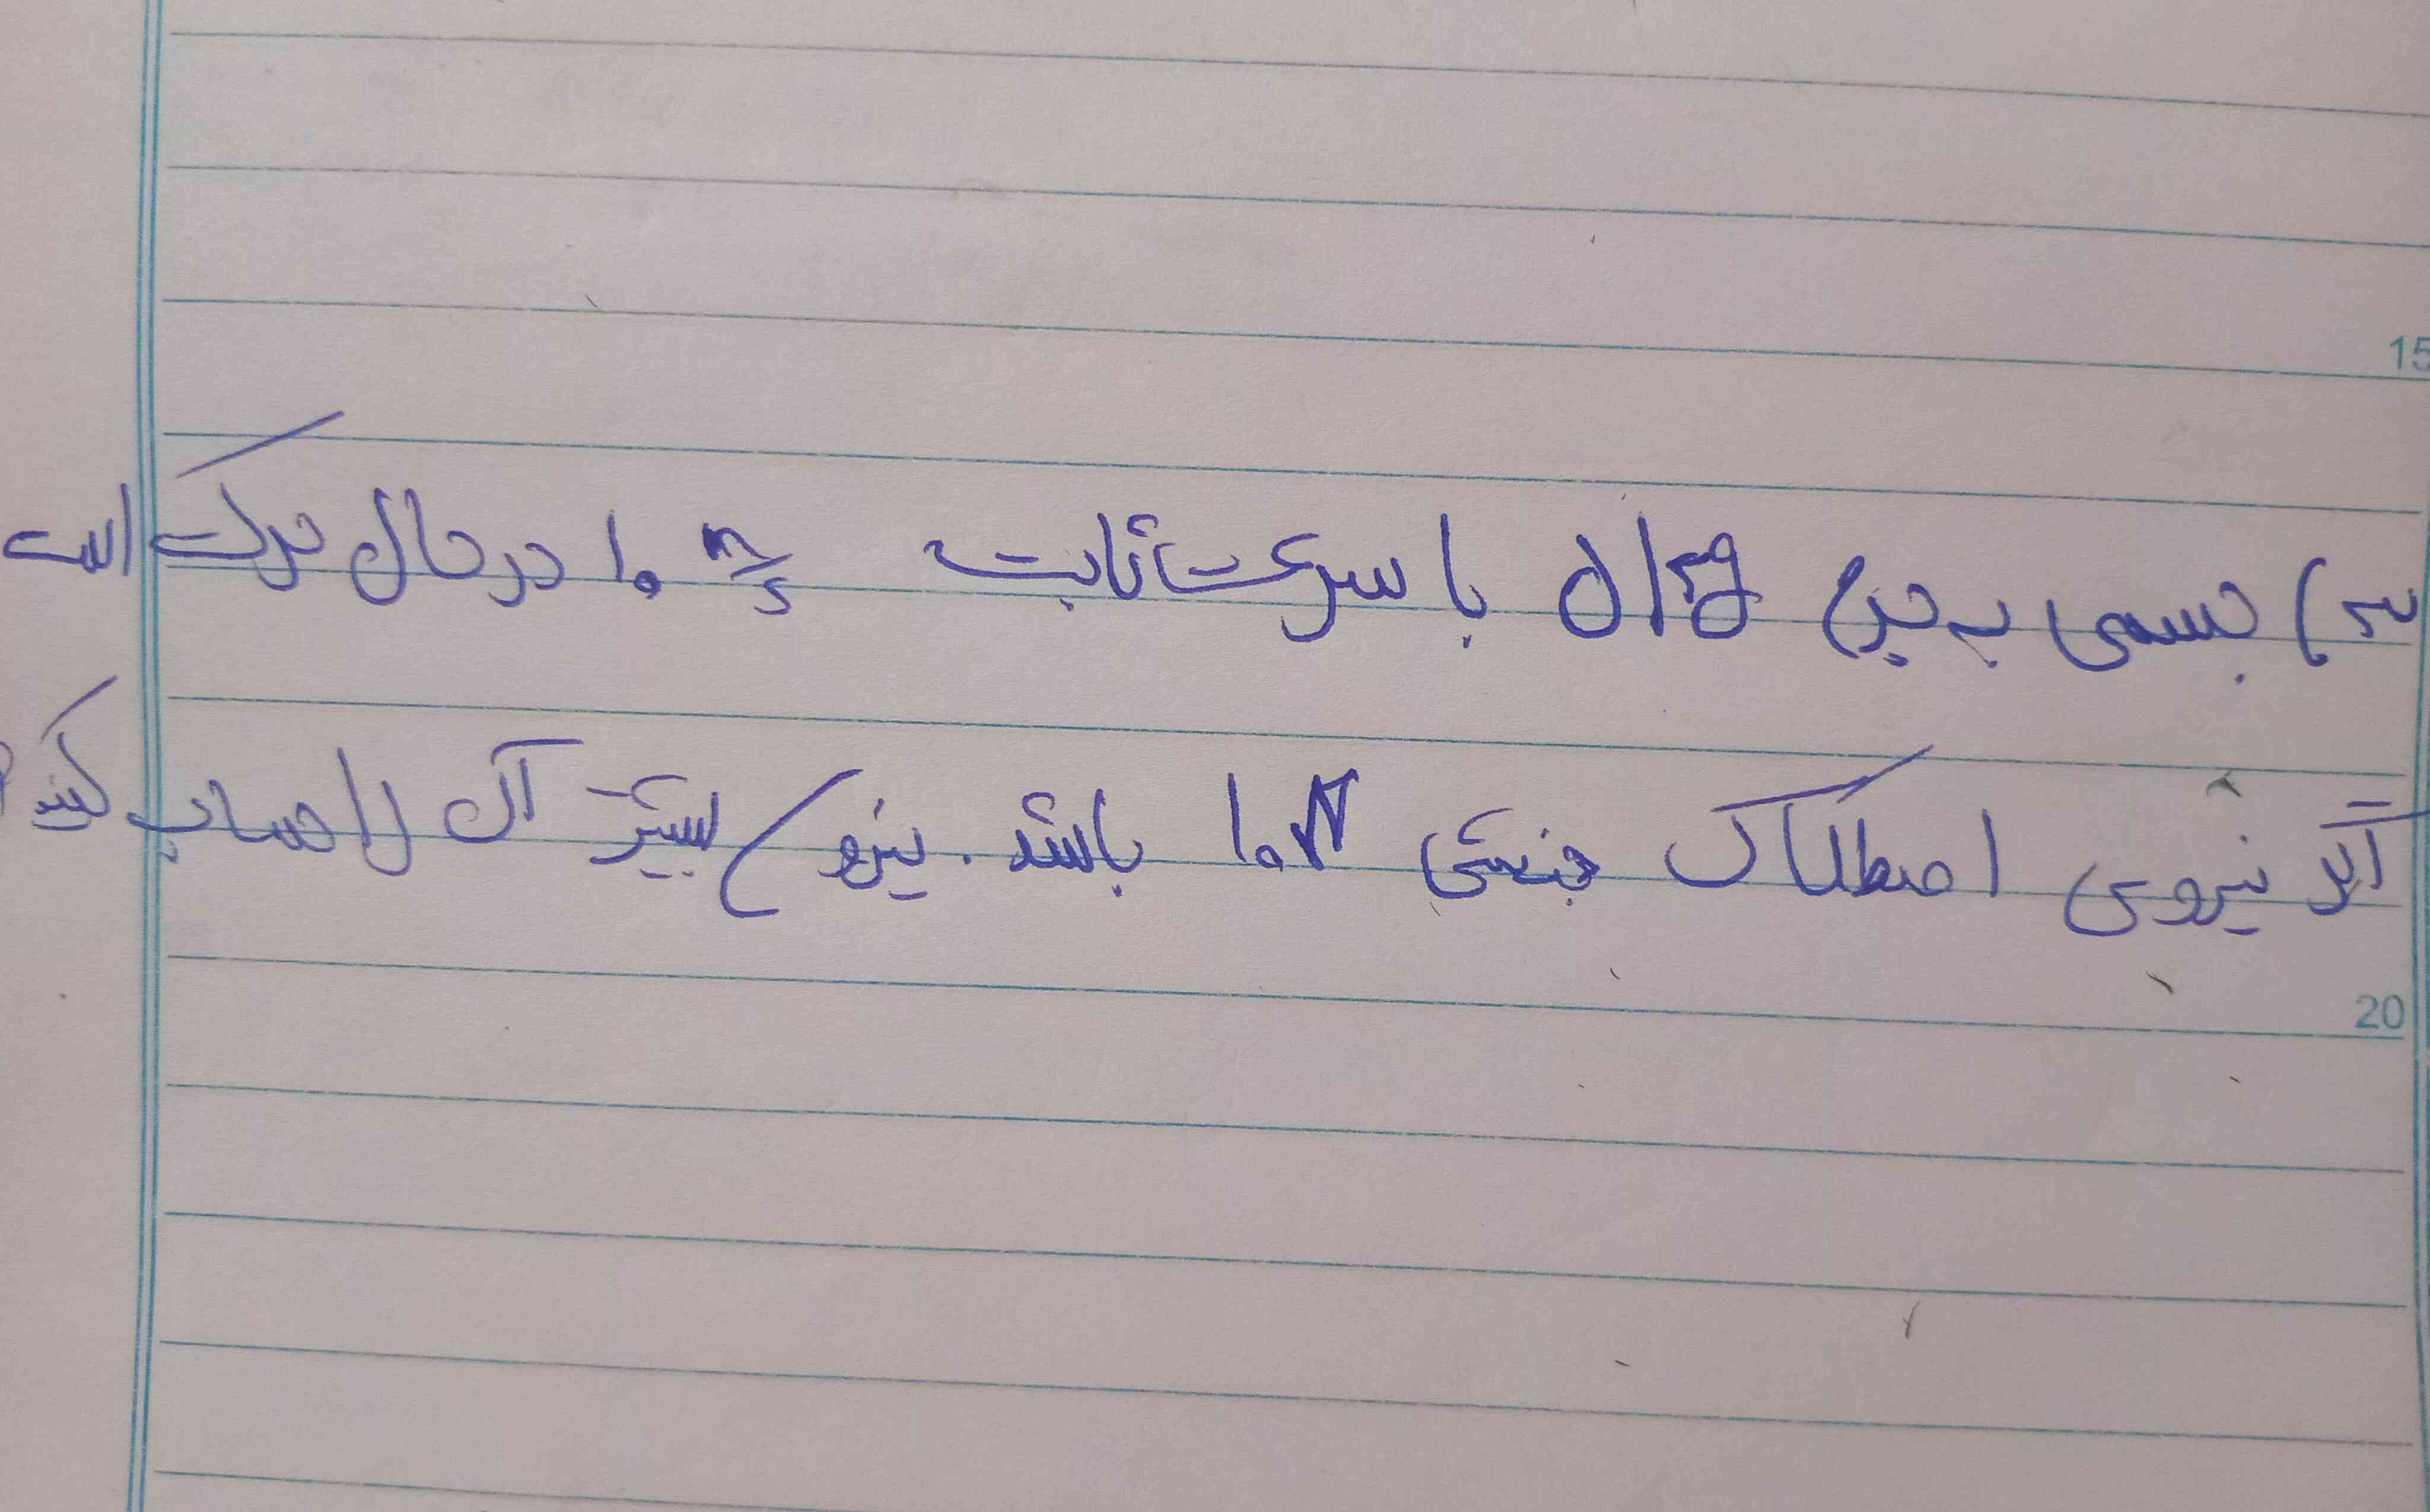 15
س) جسمی به جرم 15kg با سرعت ثابت 10 m/s در حال حرکت است
اگر نیروی اصطکاک جنبشی 10N باشد. نیروی پیشتر آن را حساب کنید
20